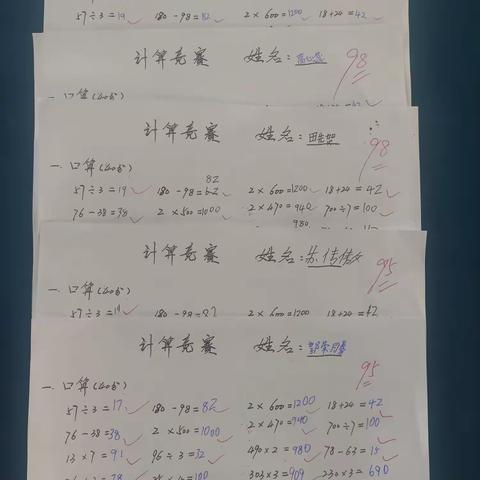 57÷3=19 180-98=82 2×600=1200 18+24=42
计算竞赛 姓名: 98
一.口算(40分)
计算竞赛 姓名: 98
一.口算(40分)
82
57÷3=19 180-98=62 2×600=1200 18+24=42
76-38=38 2×500=1000 2×470=940 700÷7=100
980
计算竞赛 姓名: 苏倩倩 95
一.口算(40分)
57÷3=19 180-98=82 2×600=1200 18+24=42
计算竞赛 姓名: 95
一.口算(40分)
57÷3=17 180-98=82 2×600=1200 18+24=42
76-38=38 2×500=1000 2×470=940 700÷7=100
13×7=91 96÷3=32 490×2=980 78-63=15
303×3=909 230×3=690